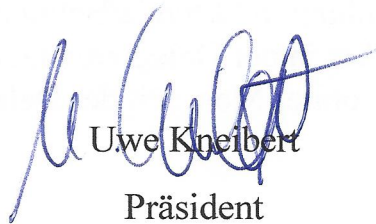 Uwe Kneibert
Präsident